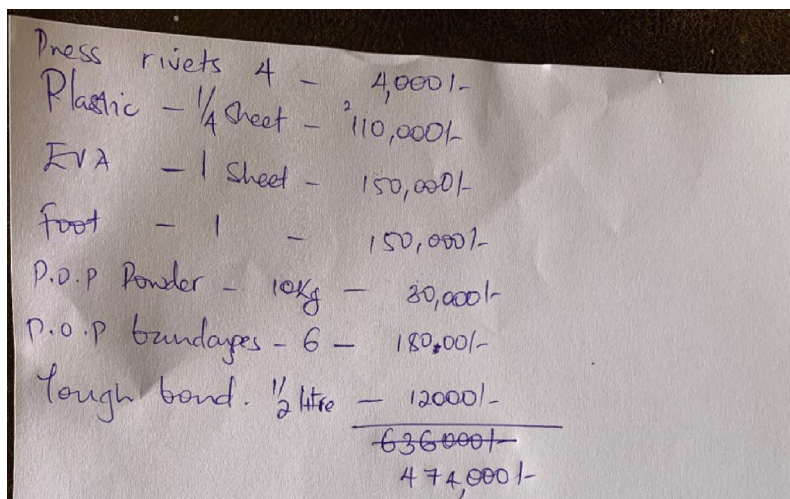 Press rivets 4 - 4,000/-
Plastic - 1/4 Sheet - 110,000/-
EVA - 1 Sheet - 150,000/-
foot - 1 - 150,000/-
P.O.P Powder - 10Kg - 30,000/-
P.O.P bandages - 6 - 180,00/-
Tough bond. 1/2 litre - 12000/-
636000/-
474,000/-